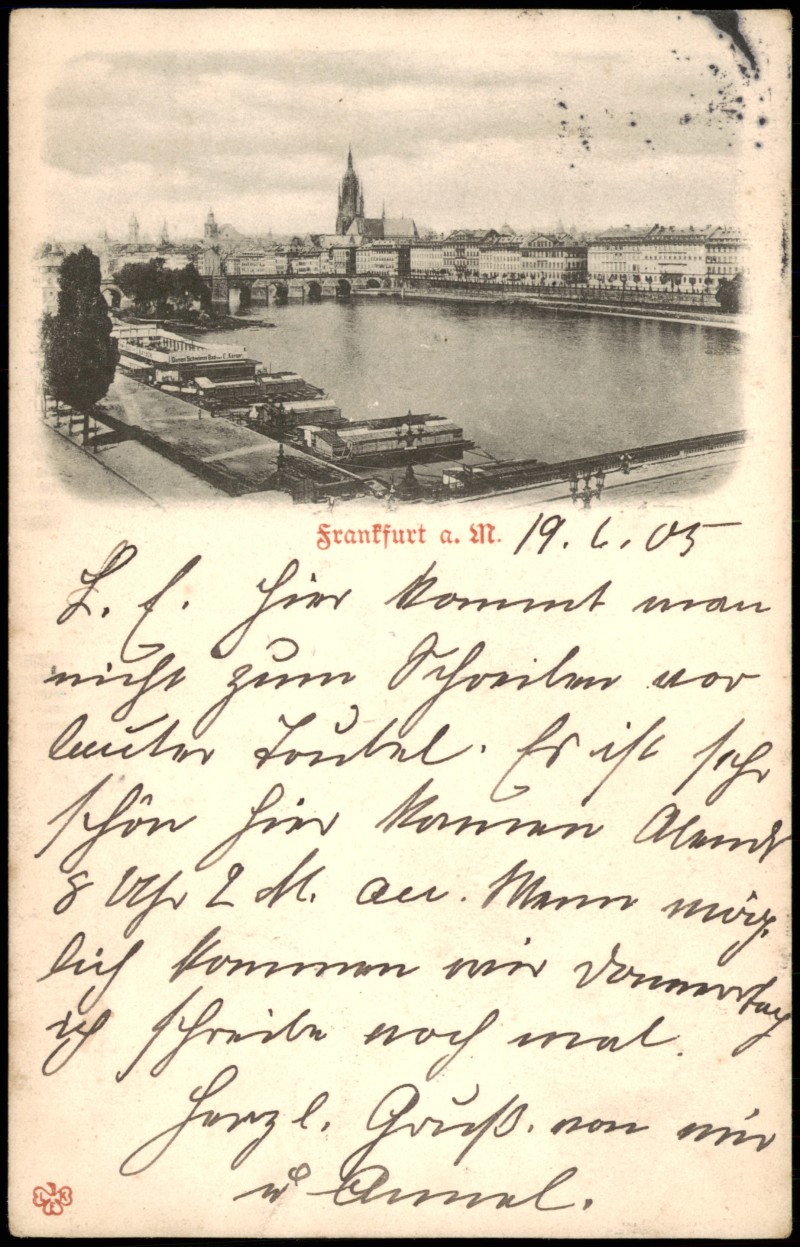 Damen Schwimm Bad von C. Kaiser
Frankfurt a. M. 19.6.05
L. E. hier kommt man
nicht zum Schreiben vor
lauter Trubel. Es ist sehr
schön hier kamen Abends
8 Uhr 2 M. an. Wenn mög-
lich kommen wir Donnerstag
ich schreibe noch mal.
Herzl. Gruß. von mir
u